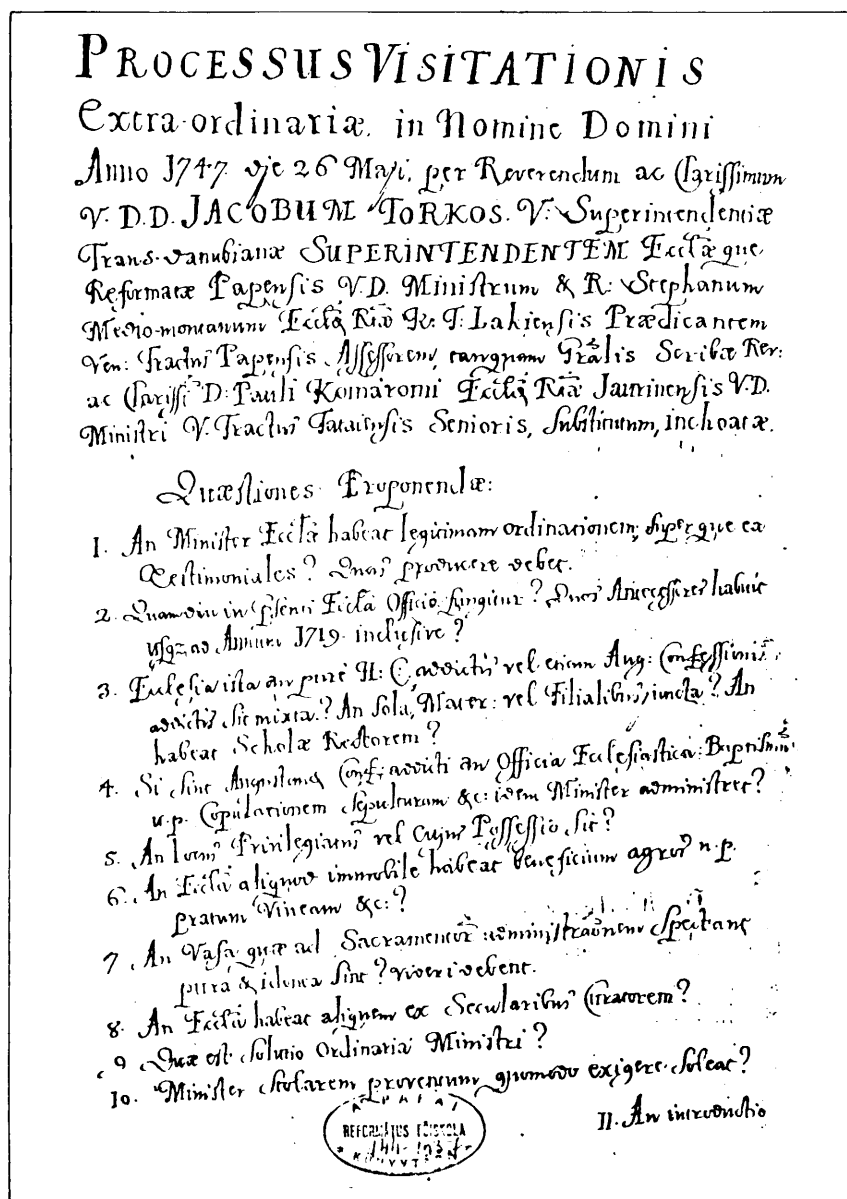 PROCESSUS VISITATIONIS
Extra-ordinariæ, in Nomine Domini
Anno 1747 die 26 Maji, per Reverendum ac Clarissimum
V. D.D. JACOBUM TORKOS. V. Superintendentiæ
Trans-danubianæ SUPERINTENDENTEM Ecclæque
Reformatæ Papensis V.D. Ministrum & R: Stephanum
Medio-montanum Ecclæ Rtæ K. T. Lakiensis Prædicantem
Ven: Tractus Papensis Assessorem, tanquam Gralis Scribæ Rer:
ac Clarissi D: Pauli Komaromi Ecclæ Rtæ Jaurinensis V.D.
Ministri V. Tractus Tataiensis Senioris, Substitutum, inchoatæ.
Quæstiones Proponendæ:
1. An Minister Ecclæ habeat legitimam ordinationem, superque ea
Testimoniales? Quas producere debet.
2. Quamdiu in psenti Ecclâ Officio fungitur? Quos Antecessores habuit
usq ad Annum 1719 inclusive?
3. Ecclesia ista an pure H: C. addictis vel etiam Aug: Confessionis
addictis sit mixta? An sola, Mater: vel Filialibus juncta? An
habeat Scholæ Rectorem?
4. Si sint Augustanæ Conf: addicti an Officia Ecclesiastica: Baptismum
u.p. Copulationem sepulturam &c: idem Minister administret?
5. An locus Privilegiatus vel Cujus Possessio sit?
6. An Ecclâ aliquod immobile habeat beneficium agros n.p.
pratum Vineam &c:?
7. An Vasa quæ ad Sacramentor administraonem Spectant
pura & idonea sint? videri debent.
8. An Ecclâ habeat aliquem ex Secularibus Curatorem?
9. Quæ est Solutio Ordinaria Ministri?
10. Minister Stolarem proventum quomodo exigere soleat?
11. An introductio
A PÁPAI
REFORMÁTUS FŐISKOLA
KÖNYVTÁRA